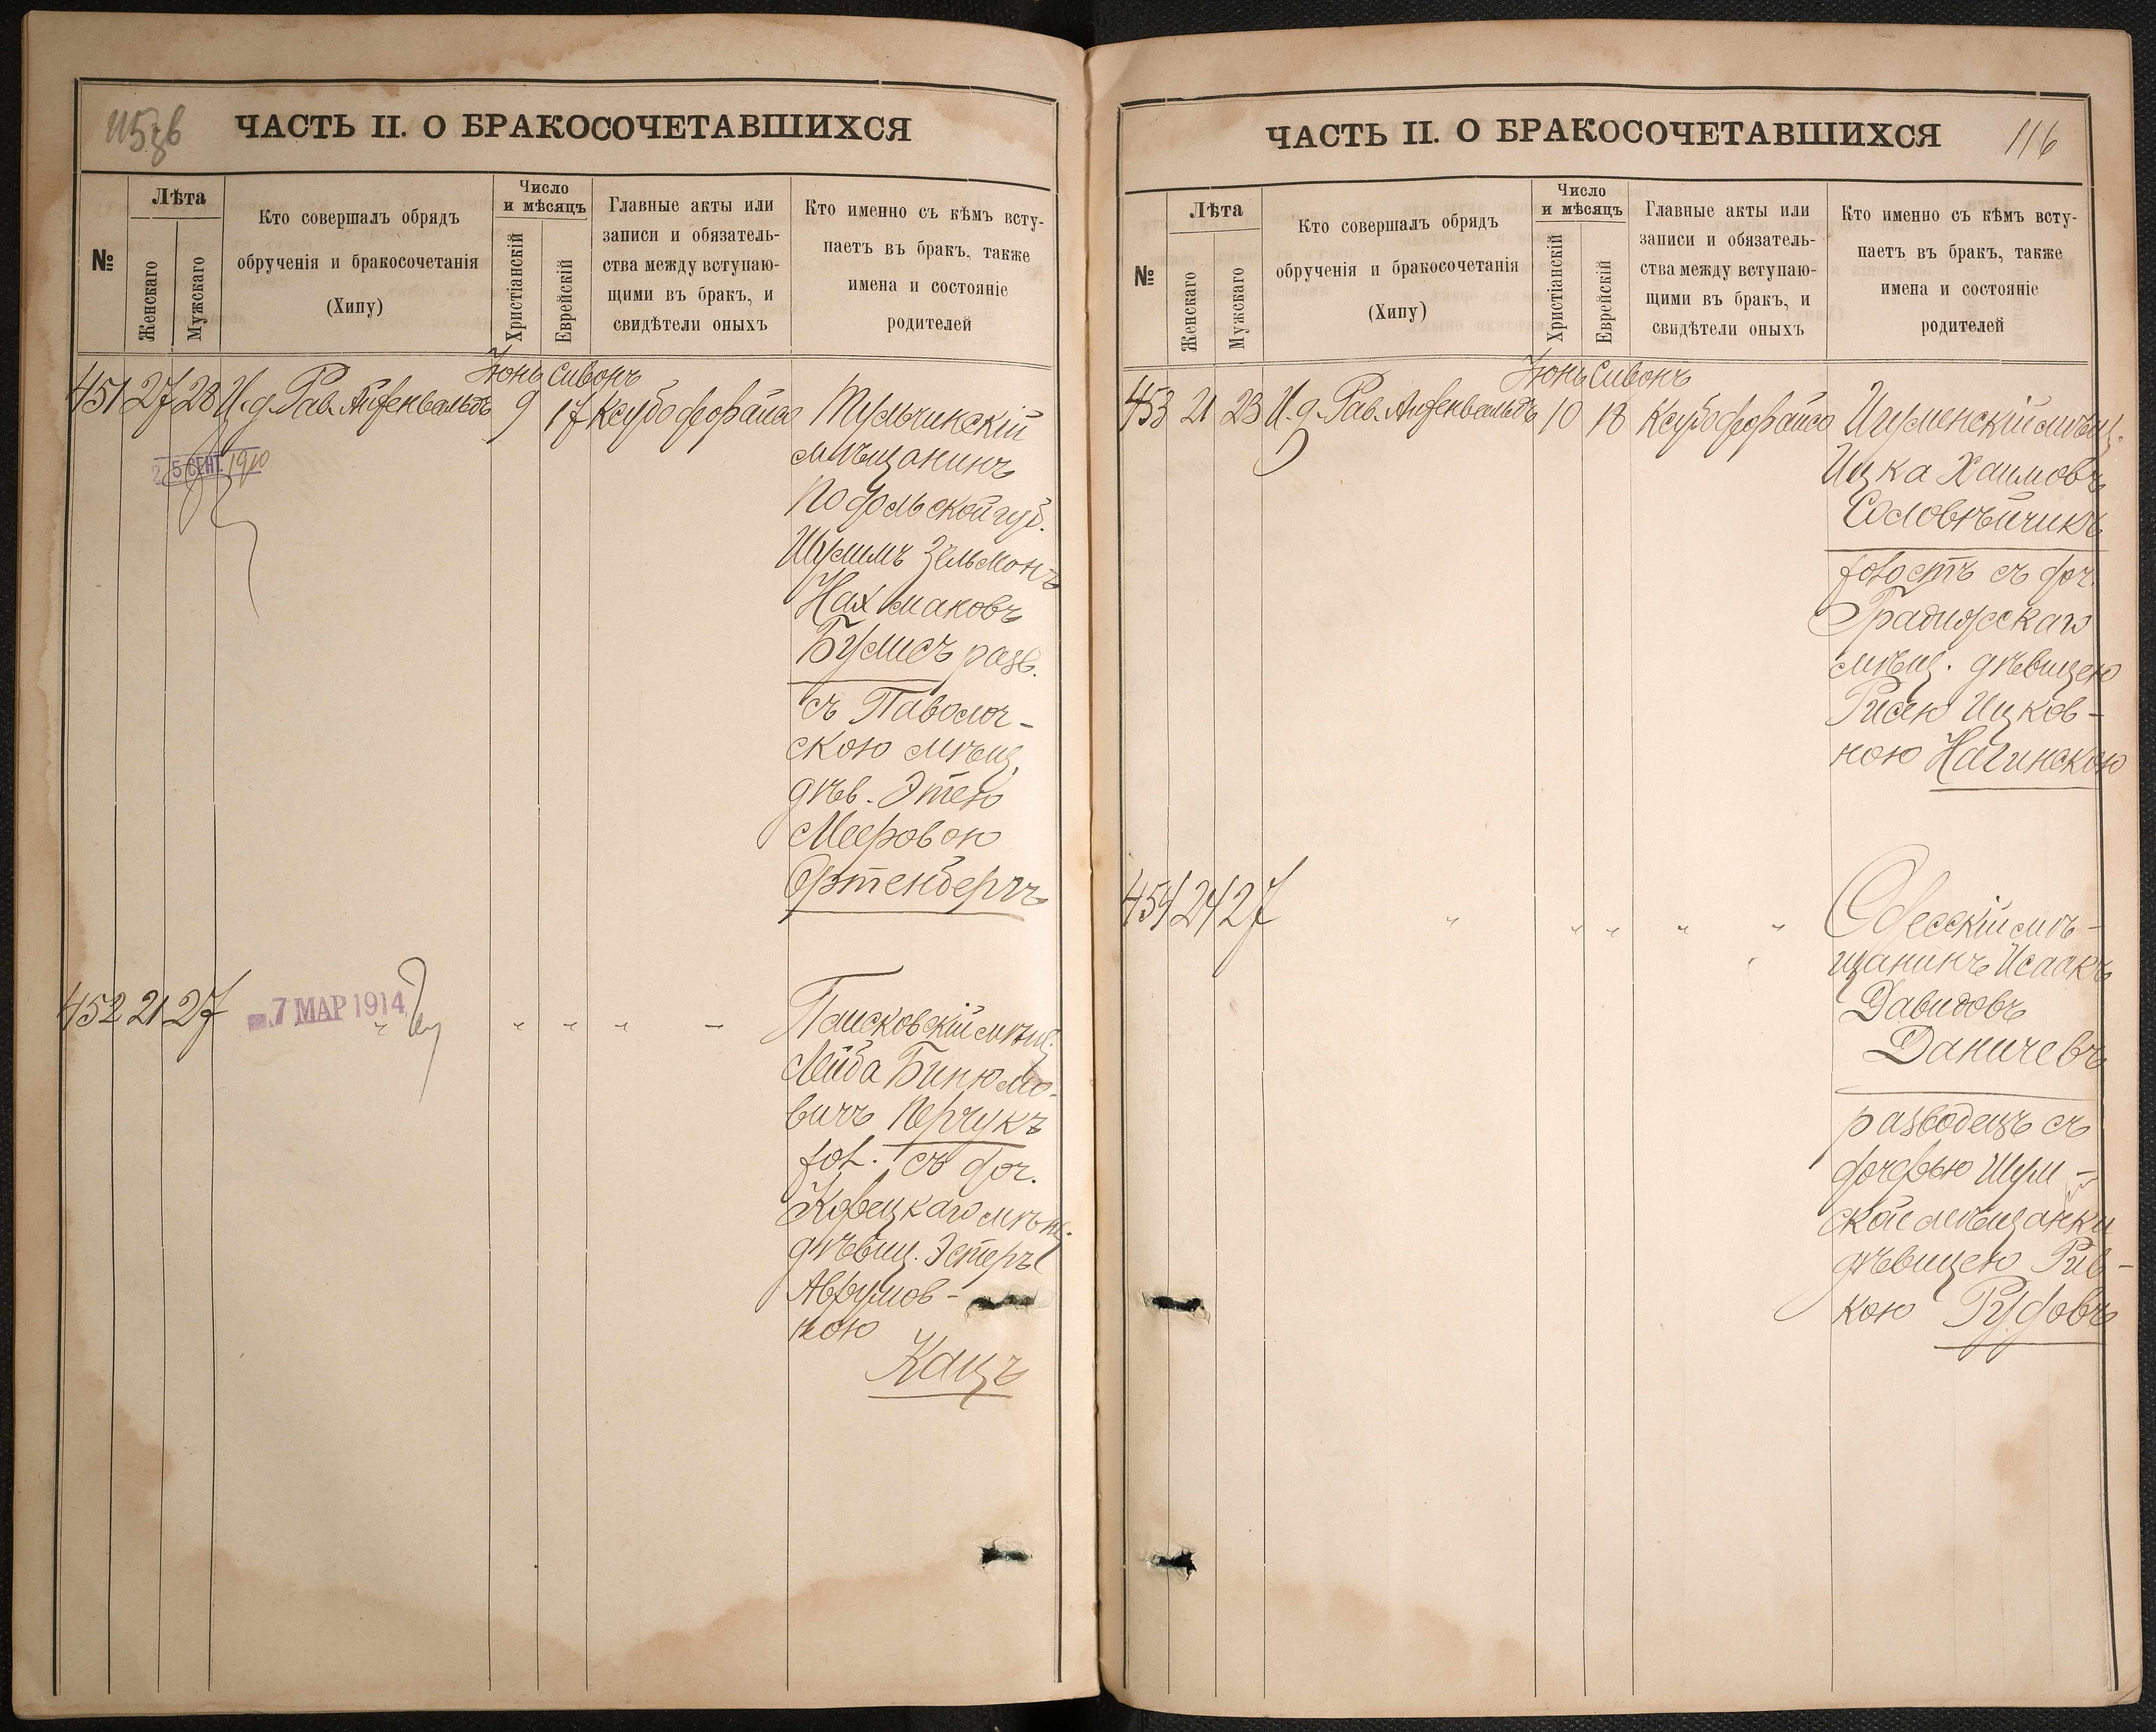 115 об
ЧАСТЬ II. О БРАКОСОЧЕТАВШИХСЯ
№
Лѣта
Женскаго
Мужскаго
Кто совершалъ обрядъ
обрученія и бракосочетанія
(Хипу)
Число
и мѣсяцъ
Христіанскій
Еврейскій
Главные акты или
записи и обязатель-
ства между вступаю-
щими въ бракъ, и
свидѣтели оныхъ
Кто именно съ кѣмъ всту-
паетъ въ бракъ, также
имена и состояніе
родителей
Іюнь Сивонъ
451 27 28 И. д. Рав. 9 17
25 СЕНТ. 1910
Тульчинскій
мѣщанинъ
Подольской губ.
Шулимъ Зельманъ
Нахмановъ
Бумисъ разв.
съ Паволоч-
скою мѣщ.
дѣв. Этею
Мееровою
Ортенбергъ
452 21 27
7 МАР 1914
" " " " -
мѣщ.
Лейба Бинюмо-
вичъ Перчукъ
хол. съ доч.
Корецкаго мѣщ.
дѣвиц. Эстеръ
Аврумов-
ною
Кацъ
ЧАСТЬ II. О БРАКОСОЧЕТАВШИХСЯ
116
№
Лѣта
Женскаго
Мужскаго
Кто совершалъ обрядъ
обрученія и бракосочетанія
(Хипу)
Число
и мѣсяцъ
Христіанскій
Еврейскій
Главные акты или
записи и обязатель-
ства между вступаю-
щими въ бракъ, и
свидѣтели оныхъ
Кто именно съ кѣмъ всту-
паетъ въ бракъ, также
имена и состояніе
родителей
Іюнь Сивонъ
453 21 23 И. д. Рав. 10 18
Игуменскій мѣщ.
Ицка Хаимовъ
Соловѣйчикъ
холостъ съ доч.
Градижскаго
мѣщ. дѣвицею
Рисею Ицков-
ною Нагинскою
454 24 27 " " " " "
Одесскій мѣ-
щанинъ Исаакъ
Давидовъ
Даничевъ
разводецъ съ
дочерью Шум-
ской мѣщанки
дѣвицею Рив-
кою Рудовъ